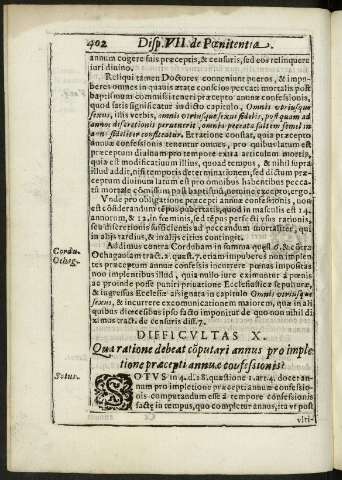 402 Disp. VII. de Pœnitentia.
annum cogere suis præceptis, & censuris, sed eos relinquere
iuri diuino.
Reliqui tamen Doctores conueniunt pueros, & impu-
beres omnes in qualis ætate conscios peccati mortalis post
baptismum commissi teneri præcepto annuæ confessionis,
quod satis significatur in dicto capitulo, Omnis vtriusque
sexus, illis verbis, omnis vtriusque sexus fidelis, postquam ad
annos discretionis peruenerit, omnia peccata saltem semel in
anno fideliter confiteatur. Et ratione constat, quia præcepto
annuæ confessionis tenentur omnes, pro quibus latum est
præceptum diuinum pro tempore extra articulum mortis,
quia est modificatum illius, quoad tempus, & nihil supra
illud addit, nisi temporis determinationem, sed dictum præ-
ceptum diuinum latum est pro omnibus habentibus pecca-
tũ mortale cõmissum post baptismũ, quoties præcepto, ergo.
Vnde pro obligatione præcepti annuæ confessionis, non
est cõsiderandum tẽpus pubertatis, quod in masculis est 14.
annorum, & 12. in fœminis, sed tẽpus perfecti vsus rationis,
seu discretionis sufficientis ad peccandum mortaliter, qui
in alijs tardius, & in alijs citius contingit.
Cordu.
Ochag.
Addimus contra Cordubam in summa quæst. 6. & cõtra
Ochagauiam tract. 2. quæst. 7. etiam impuberes non implen-
tes præceptum annuæ confessionis incurrere pœnas impositas
non implentibus illud, quia nullo iure eximuntur à pœnis
ac proinde posse puniri priuatione Ecclesiasticæ sepulturæ,
& ingressus Ecclesiæ assignata in capitulo Omnis vtriusque
sexus, & incurrere excommunicationem maiorem, quæ in ali-
quibus diœcesibus ipso facto imponitur de quo non nihil di-
ximus tract. de censuris diss. 7.
DIFFICVLTAS X.
Qua ratione debeat cõputari annus pro imple-
tione præcepti annuæ confessionis?
Sotus.
SOTVS in 4. d. 18. quæstione 1. art. 4. docet an-
num pro impletione præcepti annuæ confessio-
nis computandum esse à tempore confessionis
factæ in tempus, quo completur annus, ita vt post
vlti-